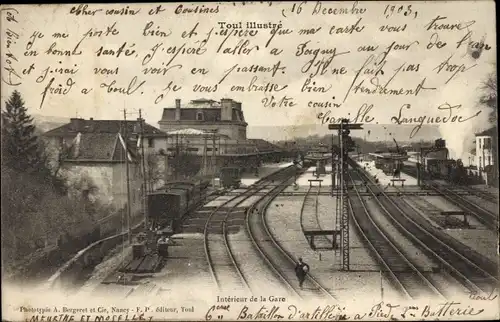 16 Decembre 1903,
Cher cousin et Cousines
Toul illustré
je me porte bien et j'espère que ma carte vous trouve
en bonne santé. J'espère aller a Pagny au jour de l'an
et j'irai vous voir en passant. Il ne fait pas trop
froid a Toul. Je vous embrasse bien tendrement
Votre cousin
Camille Languedoc
Intérieur de la Gare
Phototypie A. Bergeret et Cie, Nancy - F. P. éditeur, Toul
MEURTHE ET MOSELLE
6eme Bataillon d'artillerie a Pied, 2eme Batterie
Toul